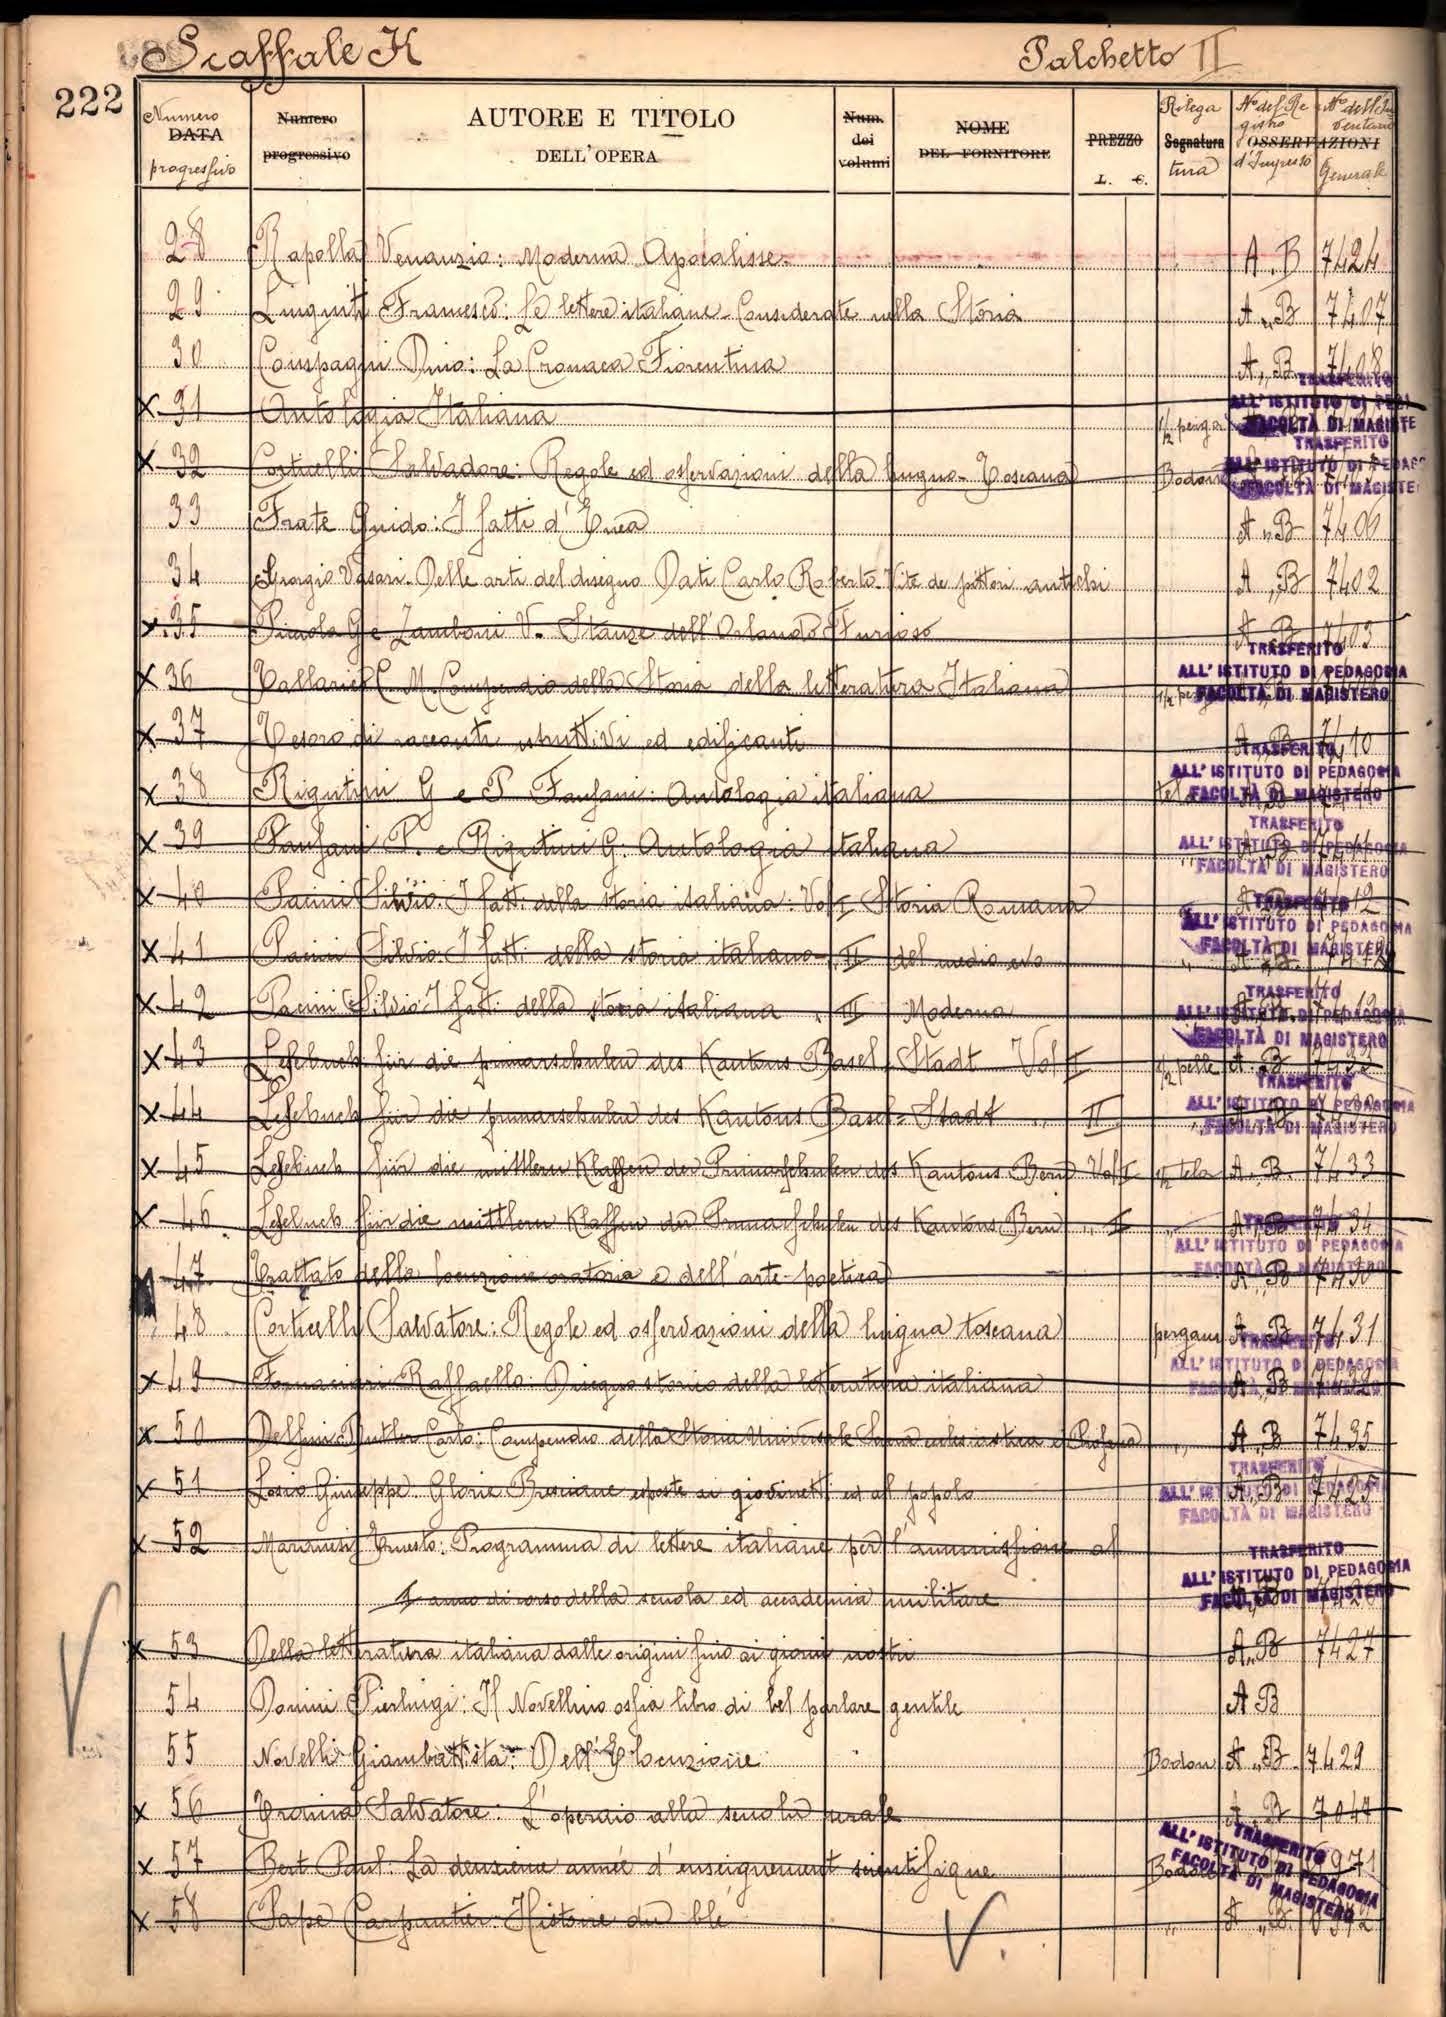 Scaffale K Palchetto II
222
Numero DATA progressivo Numero progressivo AUTORE E TITOLO DELL'OPERA Num. dei volumi NOME DEL FORNITORE PREZZO L. C. Rilega Segnatura tura N° del Registro d'Ingresso OSSERVAZIONI N° dell'Inventario Generale
28 Rapolla Venanzio: Moderna Apocalisse. A. B 7424
29 Linguiti Francesco: Le lettere italiane considerate nella Storia A „ B 7407
30 Compagni Dino: La Cronaca Fiorentina A „ B. 7408
TRASFERITO
X 31 Antologia Italiana ½ perga
ALL' ISTITUTO DI PEDA
FACOLTÀ DI MAGISTE
TRASFERITO
X 32 Corticelli Salvadore: Regole ed osservazioni della lingua Toscana Bodon
ALL' ISTITUTO DI PEDAGO
FACOLTÀ DI MAGISTE
33 Frate Guido: I fatti d'Enea A „ B 7406
34 Giorgio Vasari. Delle arti del disegno Dati Carlo Roberto. Vite de pittori antichi A „ B 7402
X 35 Picciola G e Zamboni V. Stanze dell'Orlando Furioso A „ B 7403
TRASFERITO
X 36 Tallarigo C. M. Compendio della Storia della letteratura Italiana ½ perg
ALL' ISTITUTO DI PEDAGOGIA
FACOLTÀ DI MAGISTERO
X 37 Tesoro di racconti istruttivi ed edificanti A „ B 7410
TRASFERITO
ALL' ISTITUTO DI PEDAGOGIA
X 38 Rigutini G e P Fanfani: Antologia italiana tela
FACOLTÀ DI MAGISTERO
TRASFERITO
X 39 Fanfani P. e Rigutini G: Antologia italiana A „ B
ALL' ISTITUTO DI PEDAGOGIA
FACOLTÀ DI MAGISTERO
X 40 Pacini Silvio. I fatti della storia italiana: Vol I Storia Romana A „ B 7412
TRASFERITO
ALL' ISTITUTO DI PEDAGOGIA
X 41 Pacini Silvio. I fatti della storia italiana „ II del medio evo „ A „ B.
FACOLTÀ DI MAGISTERO
TRASFERITO
X 42 Pacini Silvio I fatti della storia italiana „ III Moderna
ALL' ISTITUTO DI PEDAGOGIA
FACOLTÀ DI MAGISTERO
X 43 Lesebuch für die primarschulen des Kantons Basel Stadt Vol I ½ pelle A. B
TRASFERITO
X 44 Lesebuch für die primarschulen des Kantons Basel-Stadt „ II „ A „ B
ALL' ISTITUTO DI PEDAGOGIA
FACOLTÀ DI MAGISTERO
X 45 Lesebuch für die mittlern Klassen der Primarschulen des Kantons Bern Vol I ½ tela A „ B. 7433
X 46 Lesebuch für die mittlern Klassen der Primarschulen des Kantons Bern „ I A „ B 7434
TRASFERITO
ALL' ISTITUTO DI PEDAGOGIA
FACOLTÀ DI MAGISTERO
47 Trattato della locuzione oratoria e dell'arte poetica A „ B 7430
48 Corticelli Salvatore: Regole ed osservazioni della lingua toscana pergam A „ B 7431
TRASFERITO
ALL' ISTITUTO DI PEDAGOGIA
X 49 Fornaciari Raffaello: Disegno storico della letteratura italiana A „ B 7432
FACOLTÀ DI MAGISTERO
X 50 Delfini Butler Carlo: Compendio della Storia Universale Sacra ecclesiastica e Profana „ A „ B 7435
TRASFERITO
X 51 Losio Giuseppe. Glorie Bresciane esposte ai giovinetti ed al popolo A „ B 7425
ALL' ISTITUTO DI PEDAGOGIA
FACOLTÀ DI MAGISTERO
X 52 Marinesi Ernesto: Programma di lettere italiane per l'ammissione al
TRASFERITO
ALL' ISTITUTO DI PEDAGOGIA
I anno di corso della scuola ed accademia militare
FACOLTÀ DI MAGISTERO
X 53 Della letteratura italiana dalle origini fino ai giorni nostri A „ B 7427
54 Donini Pierluigi: Il Novellino ossia libro di bel parlare gentile A B
55 Novelli Giambattista: Dell'Elocuzione Bodon A „ B. 7429
X 56 Troina Salvatore: L'operaio alla scuola serale A „ B 7044
TRASFERITO
X 57 Bert Paul. La deuxieme année d'enseignement scientifique Bodon 971
ALL' ISTITUTO DI PEDAGOGIA
FACOLTÀ DI MAGISTERO
X 58 Pape Carpentier Histoire du blé „ A „ B.
V.
V.